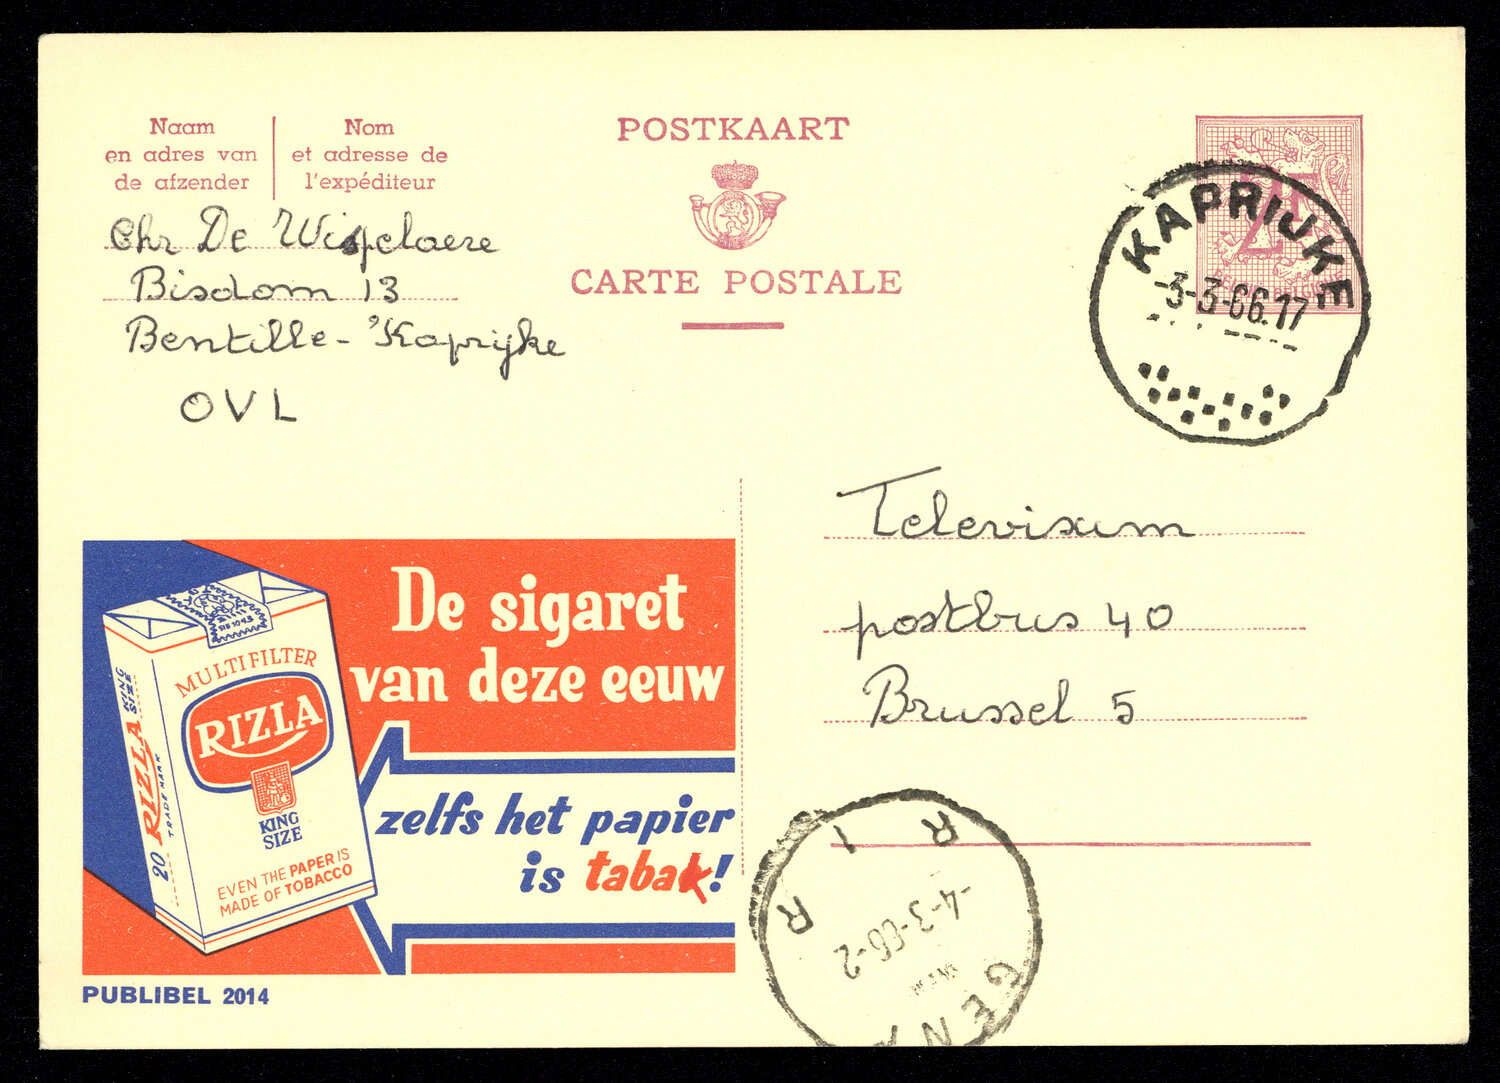 Naam
en adres van
de afzender
Nom
et adresse de
l'expéditeur
POSTKAART
CARTE POSTALE
2F
KAPRIJKE
-3-3-66.17
Chr De Wispelaere
Bisdom 13
Bentille - Kaprijke
OVL
Televixum
postbus 40
Brussel 5
De sigaret
van deze eeuw
zelfs het papier
is tabak!
MULTIFILTER
RIZLA
KING
SIZE
EVEN THE PAPER IS
MADE OF TOBACCO
20 RIZLA KING SIZE
TRADE MARK
PUBLIBEL 2014
R I R
-4-3-66-2
GENA